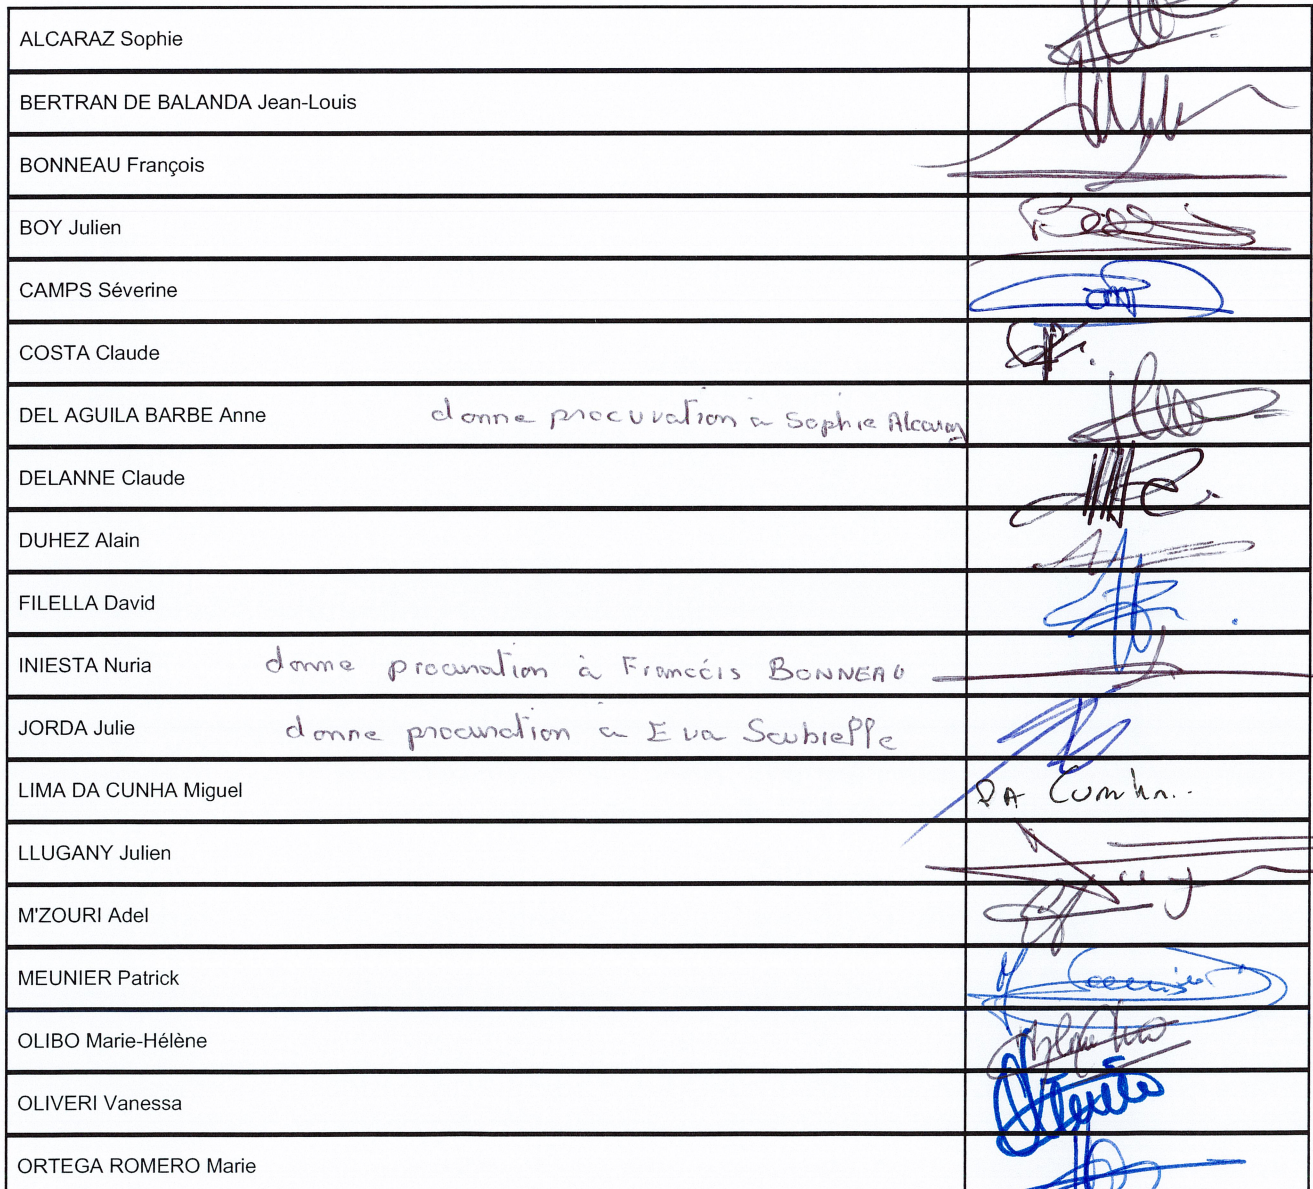 ALCARAZ Sophie
BERTRAN DE BALANDA Jean-Louis
BONNEAU François
BOY Julien
CAMPS Séverine
COSTA Claude
DEL AGUILA BARBE Anne donne procuration à Sophie Alcaraz
DELANNE Claude
DUHEZ Alain
FILELLA David
INIESTA Nuria donne procuration à François BONNEAU
JORDA Julie donne procuration à Eva Sabielle
LIMA DA CUNHA Miguel DA Cunha..
LLUGANY Julien
M'ZOURI Adel
MEUNIER Patrick
OLIBO Marie-Hélène
OLIVERI Vanessa
ORTEGA ROMERO Marie